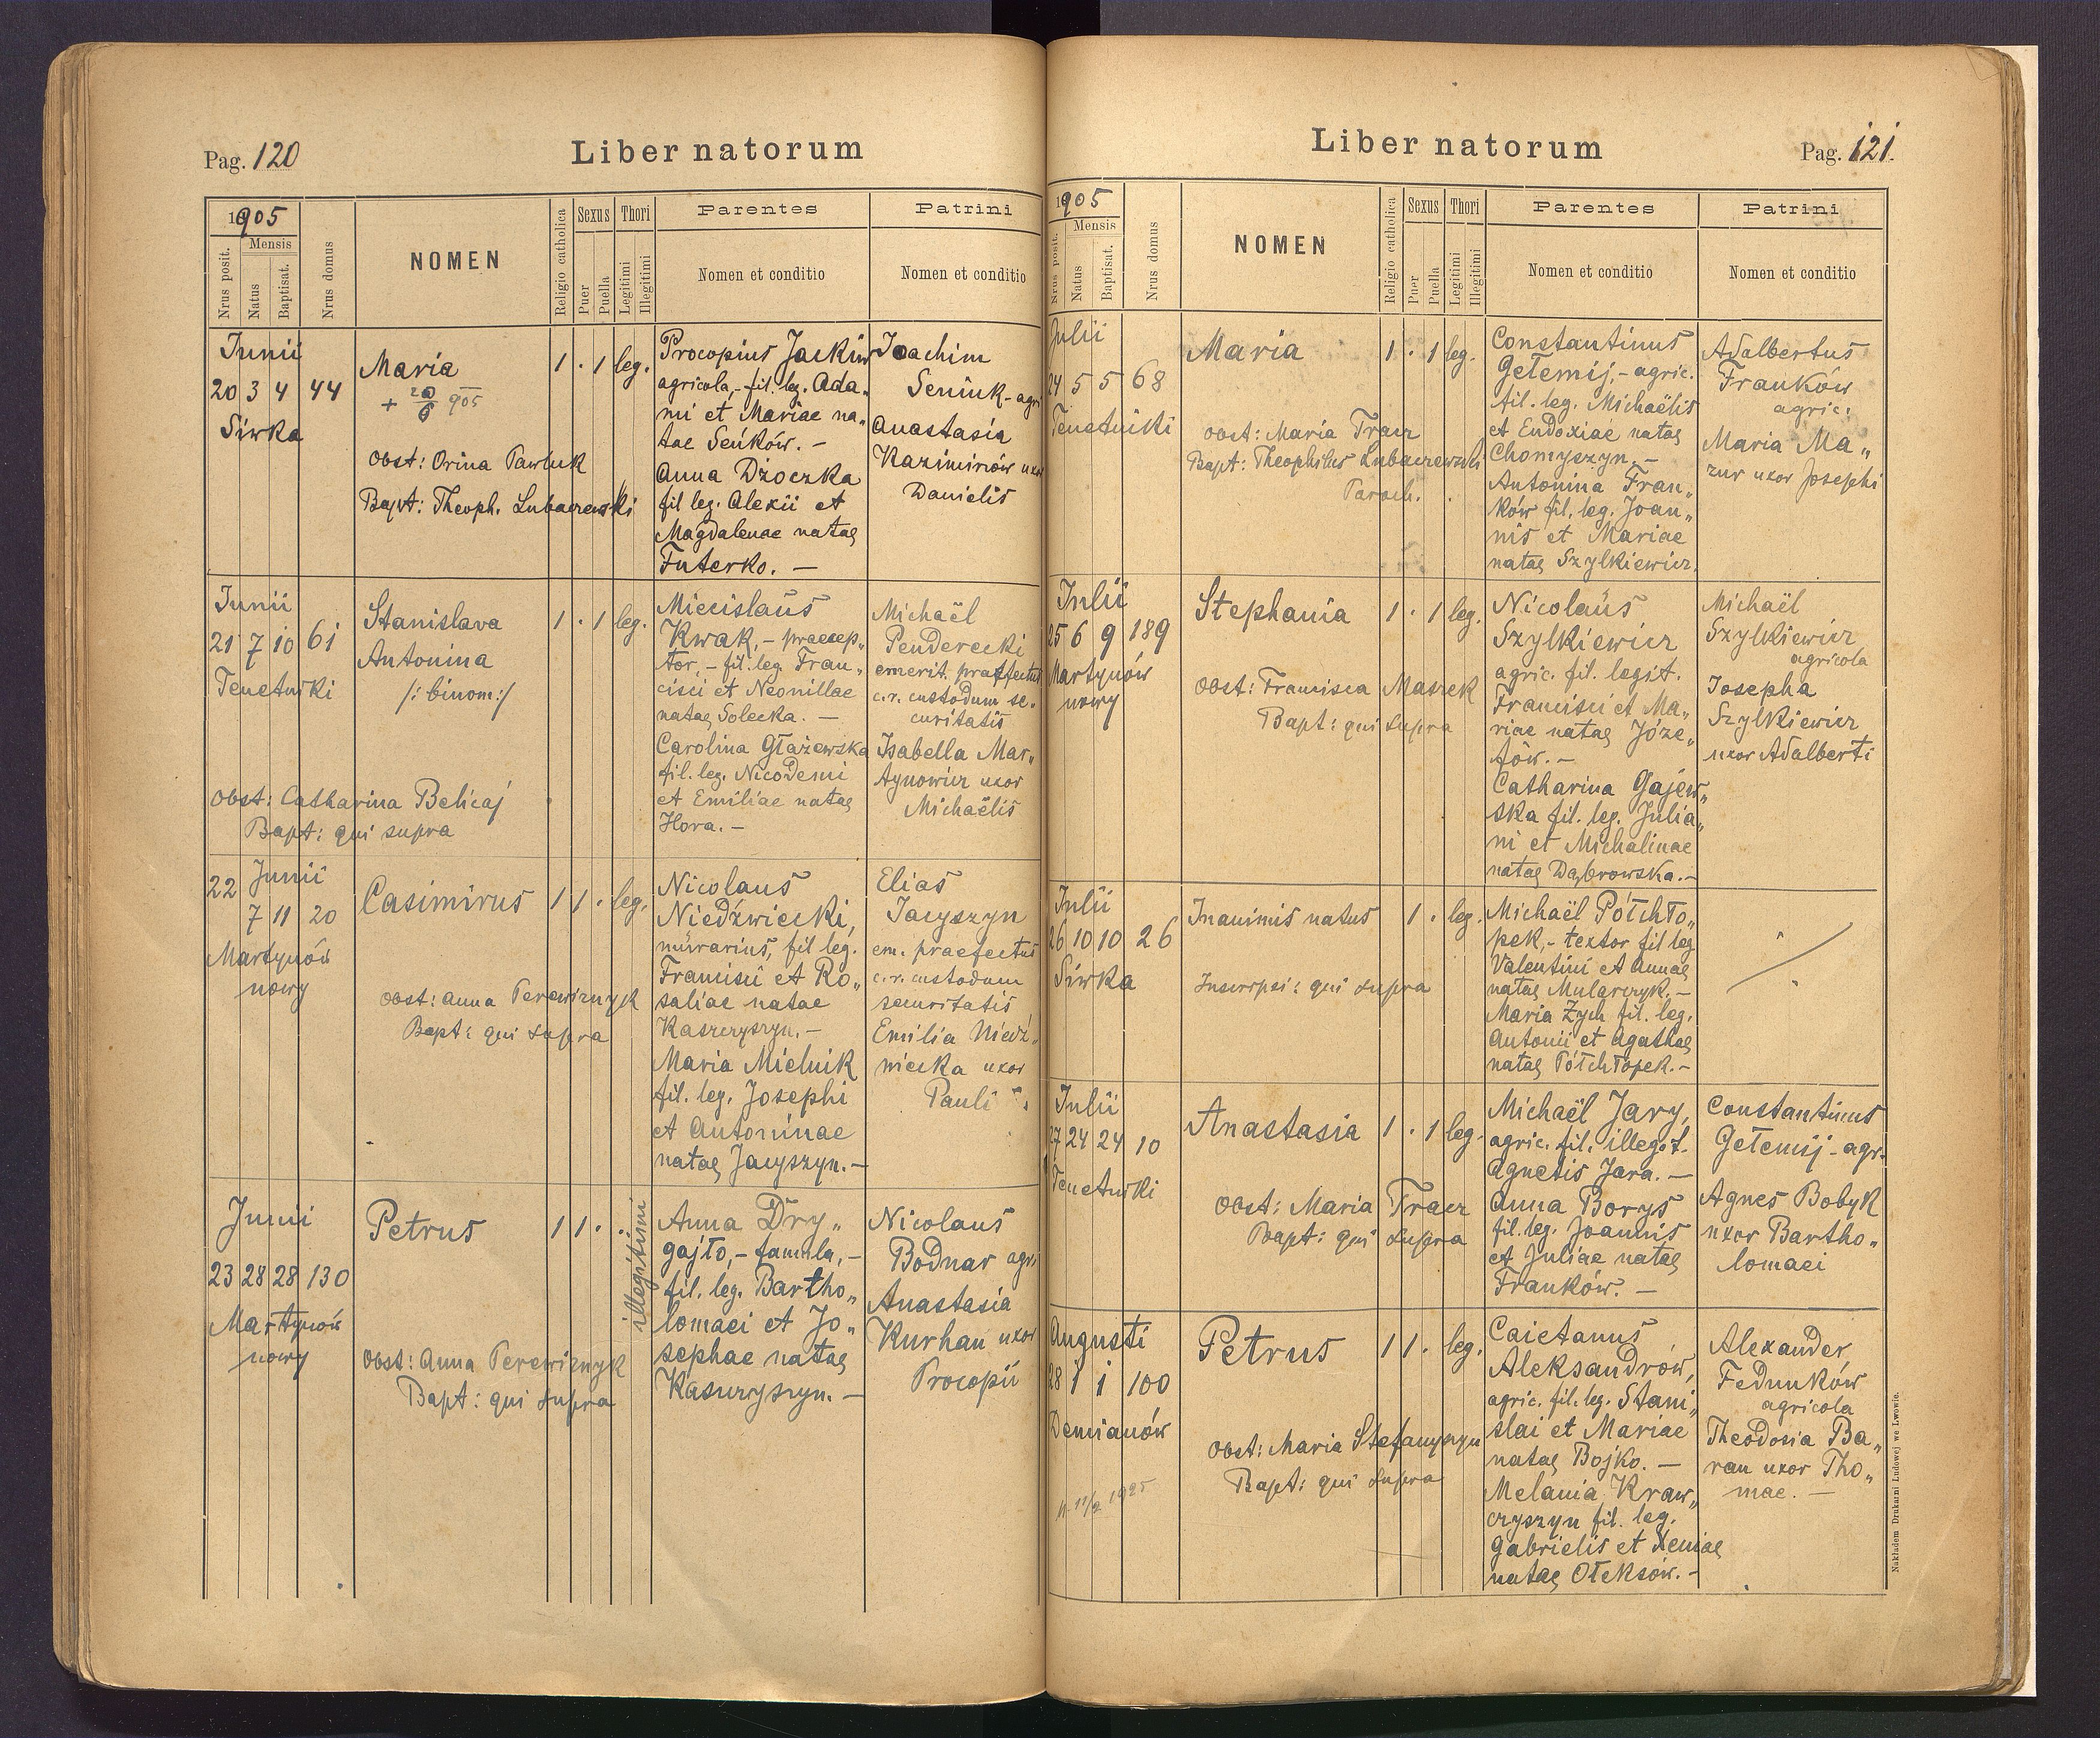 Pag. 120
Liber natorum
1905
Mensis
Nrus posit.
Natus
Baptisat.
Nrus domus
NOMEN
Religio catholica
Sexus
Puer
Puella
Thori
Legitimi
Illegitimi
Parentes
Nomen et conditio
Patrini
Nomen et conditio
Junii
20 3 4 44
Siwka
Maria
+ 20/6 905
Obst: Orina Pawluk
Bapt: Theoph. Lubaczewski
1 · 1 leg.
Procopius Jackiw
agricola,- fil. leg. Ada„
mi et Mariae na„
tae Seńków. -
Anna Dżoczka
fil leg. Alexii et
Magdalenae natae
Futerko. -
Joachim
Seniuk - agr
Anastasia
Kazimirów uxor
Danielis
Junii
21 7 10 61
Tenetniki
Stanislava
Antonina
/: binom:/
Obst: Catharina Belicaj
Bapt: qui supra
1 · 1 leg.
Miecislaus
Kwak, - praecep„
tor, - fil. leg. Fran„
cisci et Neonillae
natae Solecka. -
Carolina Głażewska
fil. leg. Nicodemi
et Emiliae natae
Hora. -
Michaël
Penderecki
emerit. praefectus
c. r. custodum se„
curitatis
Isabella Mar„
tynowicz uxor
Michaëlis
Junii
22 7 11 20
Martynów
nowy
Casimirus
Obst: Anna Perewiznyk
Bapt: qui supra
1 1 · leg.
Nicolaus
Niedźwiecki,
murarius, fil leg.
Francisci et Ro„
saliae natae
Kaszczyszyn. -
Maria Mielnik
fil. leg. Josephi
et Antoninae
natae Jacyszyn. -
Elias
Jacyszyn
em. praefectus
c. r. custodum
securitatis
Emilia Niedź„
wiecka uxor
Pauli
Junii
23 28 28 130
Martynów
nowy
Petrus
Obst: Anna Perewiznyk
Bapt: qui supra
1 1 · ·
illegitimi
Anna Dry„
gajło, - famula, -
fil. leg. Bartho„
lomaei et Jo„
sephae natae
Kaszczyszyn. -
Nicolaus
Bodnar agr.
Anastasia
Kurhan uxor
Procopii
Liber natorum
Pag. 121.
1905
Mensis
Nrus posit.
Natus
Baptisat.
Nrus domus
NOMEN
Religio catholica
Sexus
Puer
Puella
Thori
Legitimi
Illegitimi
Parentes
Nomen et conditio
Patrini
Nomen et conditio
Julii
24 5 5 68
Tenetniki
Maria
Obst: Maria Tracz
Bapt: Theophilus Lubaczewski
Paroch.
1 · 1 leg.
Constantinus
Gełemij, - agric.
fil. leg. Michaëlis
et Eudoxiae natae
Chomyszyn. -
Antonina Fran„
ków fil. leg. Joan„
nis et Mariae
natae Szylkiewicz.
Adalbertus
Franków
agric.
Maria Ma„
zur uxor Josephi
Julii
25 6 9 189
Martynów
nowy
Stephania
Obst: Francisca Maszek
Bapt: qui supra
1 · 1 leg.
Nicolaus
Szylkiewicz
agric. fil. legit.
Francisci et Ma„
riae natae Józe„
fów. -
Catharina Gajew„
ska fil. leg. Julia„
ni et Michalinae
natae Dąbrowska. -
Michaël
Szylkiewicz
agricola
Josepha
Szylkiewicz
uxor Adalberti
Julii
26 10 10 26
Siwka
Inanimis natus
Inscripsi: qui supra
1 · leg.
Michaël Półchło„
pek, - textor fil leg
Valentini et Annae
natae Mularczyk. -
Maria Zych fil. leg.
Antonii et Agathae
natae Półchłopek. -
Julii
27 24 24 10
Tenetniki
Anastasia
Obst: Maria Tracz
Bapt: qui supra
1 · 1 leg.
Michaël Jary,
agric. fil. illegit.
Agnetis Jara. -
Anna Borys
fil. leg. Joannis
et Juliae natae
Franków. -
Constantinus
Gełemij - agr.
Agnes Bobyk
uxor Bartho„
lomaei
Augusti
28 1 1 100
Demianów
Petrus
Obst: Maria Stefanyszyn
Bapt: qui supra
1 1 · leg.
Caietanus
Aleksandrów,
agric. fil. leg. Stani„
slai et Mariae
natae Bojko. -
Melania Kraw„
czyszyn fil. leg.
Gabrielis et Xeniae
natae Ołeksów. -
Alexander
Fedunków
agricola
Theodosia Ba„
ran uxor Tho„
mae. -
11/2 1925
Nakładem Drukarni Ludowej we Lwowie.